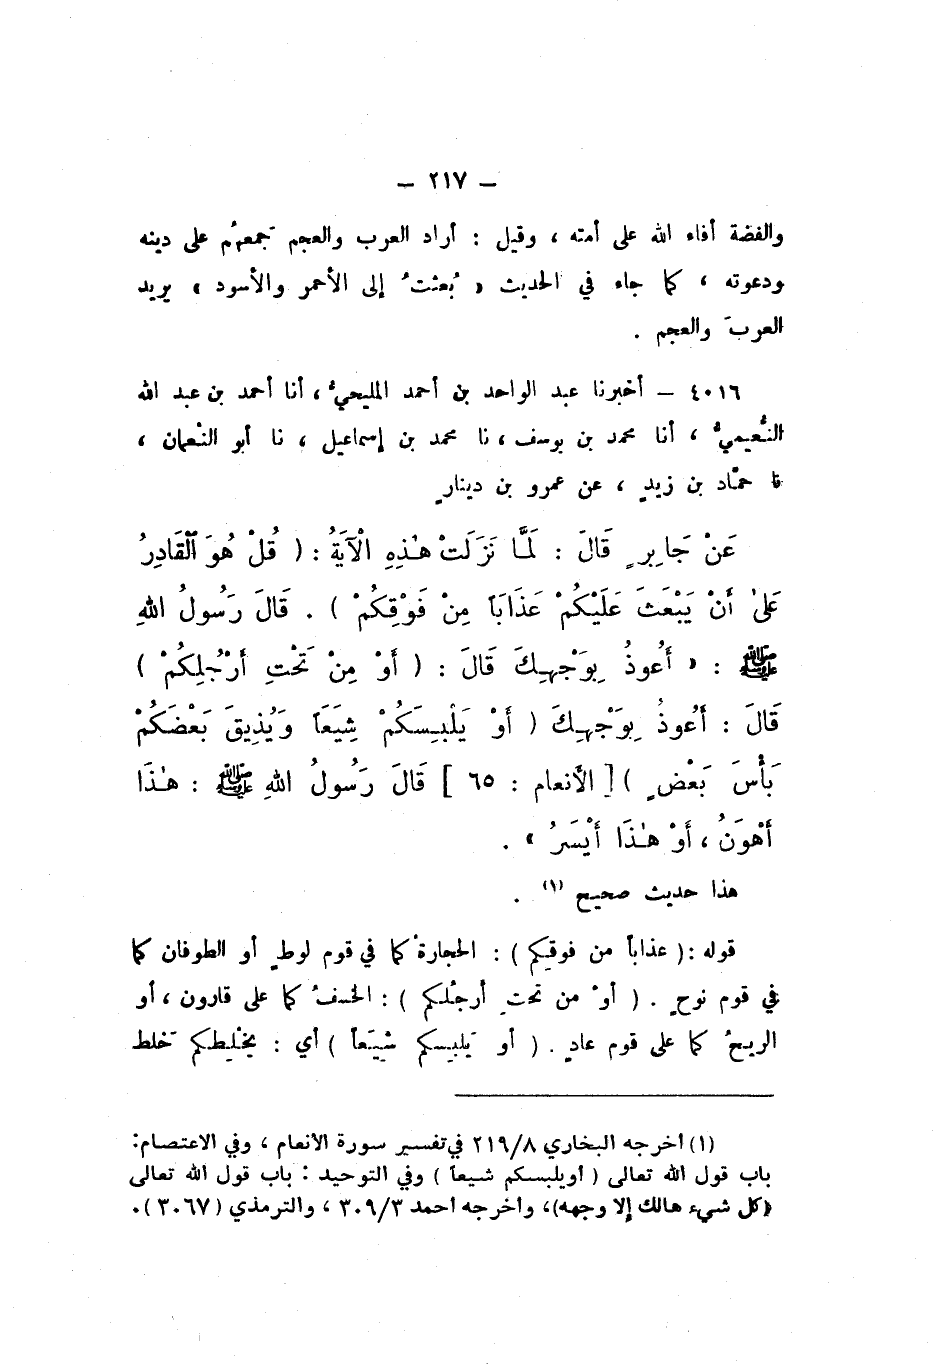 – ٢١٧ –
والفضة أفاء الله على أمته ، وقيل : أراد العرب والعجم جمعهُم على دينه
ودعوته ، كما جاء في الحديث « بُعثتُ إلى الأحمر والأسود » يريد
العربَ والعجم .
٤٠١٦ – أخبرنا عبد الواحد بن أحمد المليحيُّ ، أنا أحمد بن عبد الله
النُّعيميُّ ، أنا محمد بن يوسف ، نا محمد بن إسماعيل ، نا أبو النُعمان ،
نا حمّاد بن زيدٍ ، عن عمرو بن دينارٍ
عَنْ جَابِرٍ قَالَ : لَمَّا نَزَلَتْ هٰذِهِ الْآيَةُ : ( قُلْ هُوَ ٱلْقَادِرُ
عَلىٰ أَنْ يَبْعَثَ عَلَيْكُمْ عَذَابَاً مِنْ فَوْقِكُمْ ) . قَالَ رَسُولُ اللهِ
ﷺ : « أَعُوذُ بِوَجْهِكَ قَالَ : ( أَوْ مِنْ تَحْتِ أَرْجُلِكُمْ )
قَالَ : أَعُوذُ بِوَجْهِكَ ( أَوْ يَلْبِسَكُمْ شِيَعَاً وَيُذِيقَ بَعْضَكُمْ
بَأْسَ بَعْضٍ ) [ الأنعام : ٦٥ ] قَالَ رَسُولُ اللهِ ﷺ : هٰذَا
أَهْوَنُ ، أَوْ هٰذَا أَيْسَرُ » .
هذا حديث صحيح (١) .
قوله : ( عذاباً من فوقِكم ) : الحجارة كما في قوم لوطٍ أو الطوفان كما
في قوم نوحٍ . ( أوْ من تحتِ أرجُلكم ) : الخسفُ كما على قارون ، أو
الريحُ كما على قوم عادٍ . ( أو يَلبِسكم شِيَعاً ) أي : يخْلِطكم خَلط
(١) أخرجه البخاري ٢١٩/٨ في تفسير سورة الأنعام ، وفي الاعتصام:
باب قول الله تعالى ( أو يلبسكم شيعاً ) وفي التوحيد : باب قول الله تعالى
(كل شيء هالك إلا وجهه)، وأخرجه أحمد ٣٠٩/٣ ، والترمذي (٣٠٦٧).